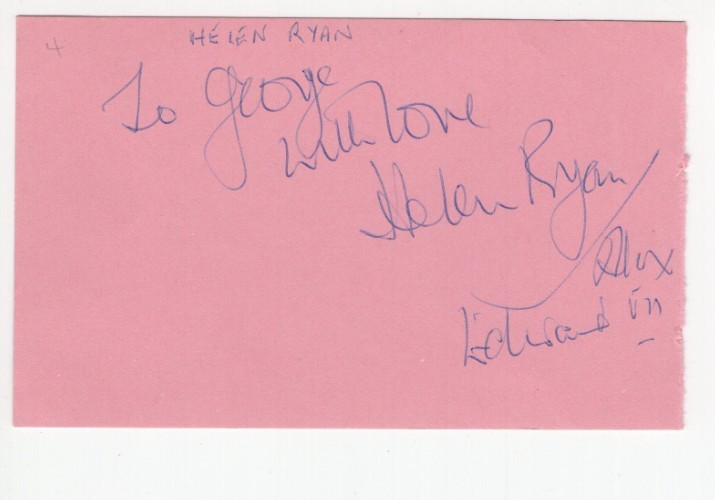 4
HELEN RYAN
To George
with love
Helen Ryan
Alex
Edward VII